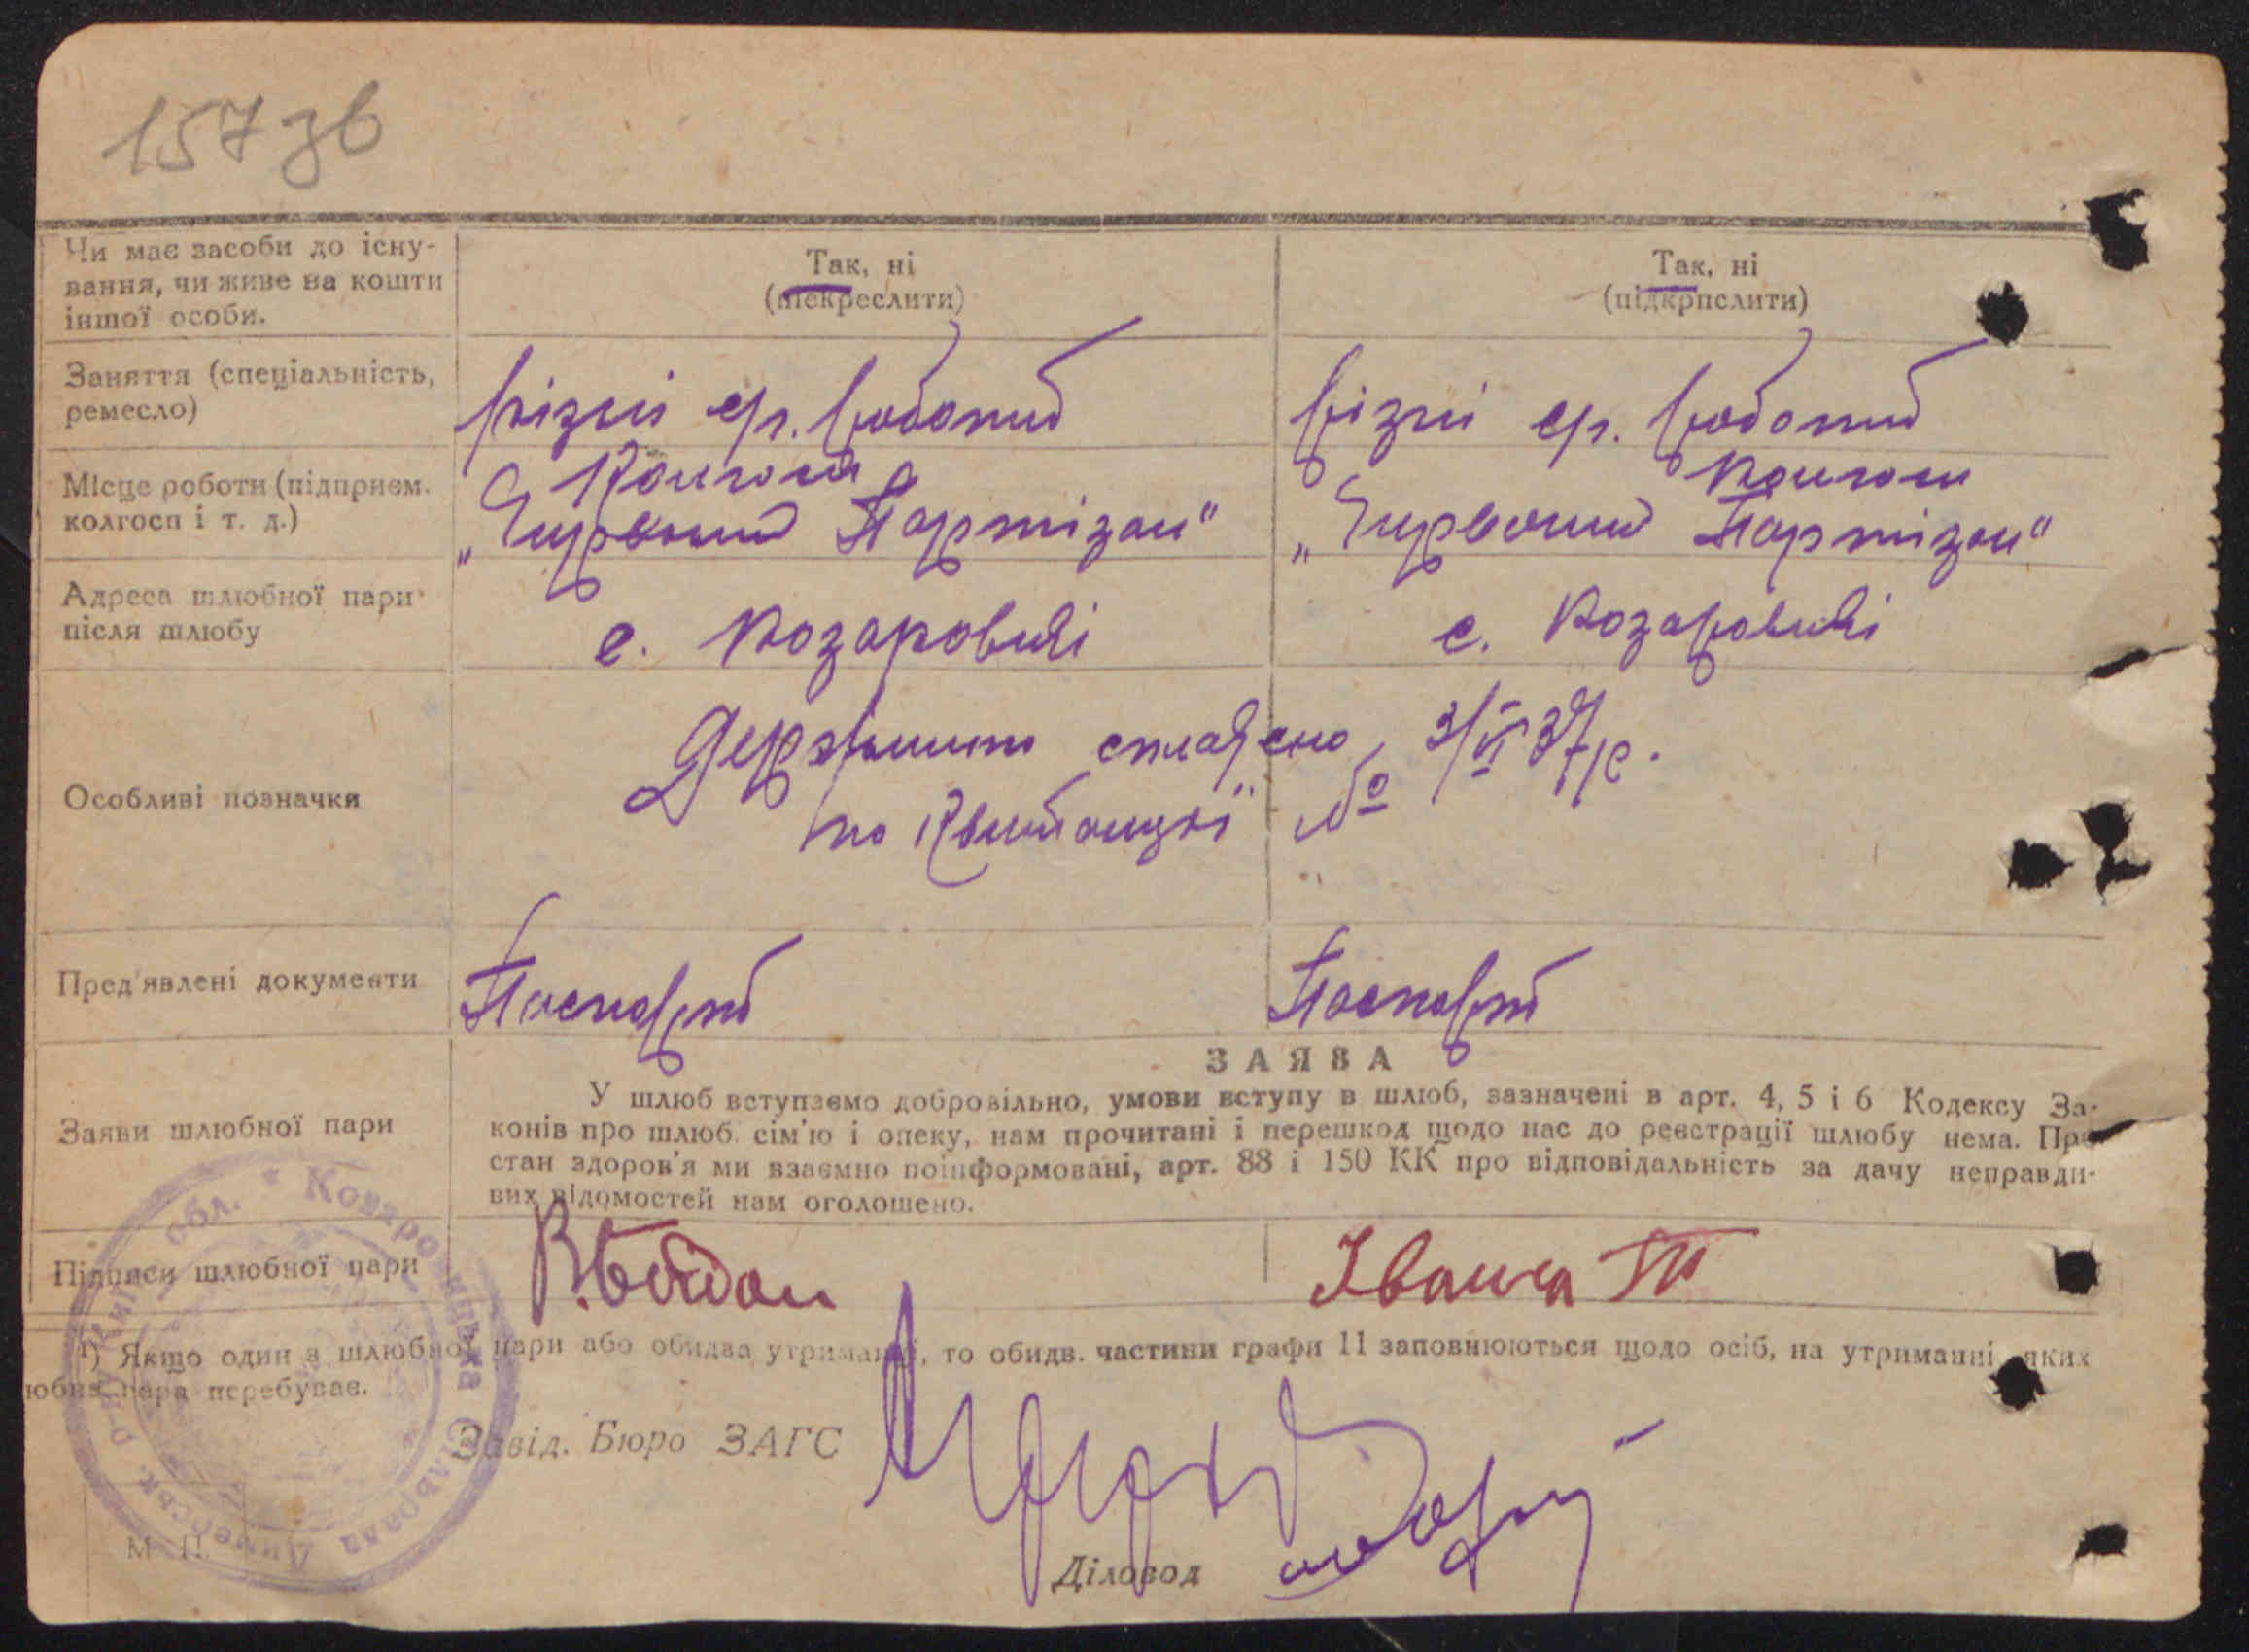 157 зв
Чи має засоби до існу-
вання, чи живе на кошти
іншої особи.
Так, ні
(підкреслити)
Так, ні
(підкрпслити)
Заняття (спеціальність,
ремесло)
різні с.г. роботи
різні с.г. роботи
Місце роботи (підприєм.
колгосп і т. д.)
Колгосп
„Червоний Партізан"
Колгосп
„Червоний Партізан"
Адреса шлюбної пари
після шлюбу
с. Козаровичі
с. Козаровичі
Особливі позначки
Держмито сплачено 3/VI 37 р.
по квитанції №
Пред'явлені документи
Паспорт
Паспорт
ЗАЯВА
Заяви шлюбної пари
У шлюб вступаємо добровільно, умови вступу в шлюб, зазначені в арт. 4, 5 і 6 Кодексу За-
конів про шлюб. сім'ю і опеку, нам прочитані і перешкод щодо нас до реєстрації шлюбу нема. Про
стан здоров'я ми взаємно поінформовані, арт. 88 і 150 КК про відповідальність за дачу неправди-
вих відомостей нам оголошено.
Підписи шлюбної пари
¹) Якщо один з шлюбної пари або обидва утриманці, то обидв. частини графи 11 заповнюються щодо осіб, на утриманні яких
юбна пара перебуває.
Завід. Бюро ЗАГС
Діловод
М. П.
Козаровицька Сільрада Димерськ. р-ну Київ. обл.